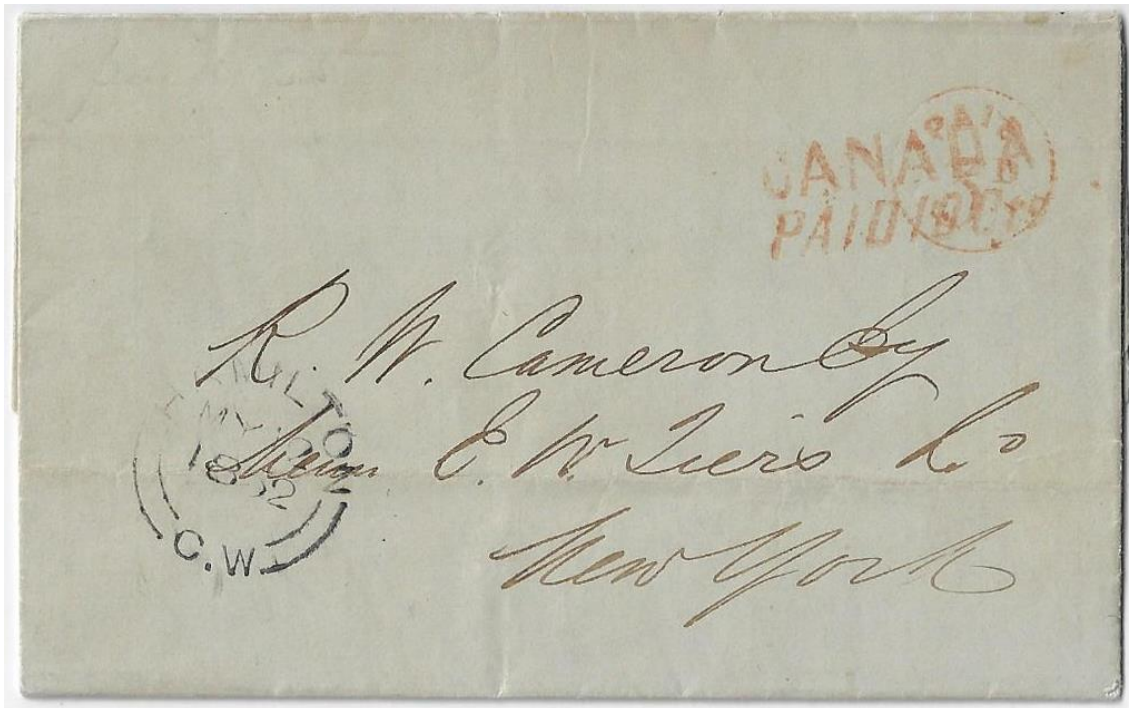 CANADA
PAID 10 Cts
PAID
R. W. Cameron Esq
E. W. Tiers & Co
New York
HAMILTON
MY
1852
C.W.